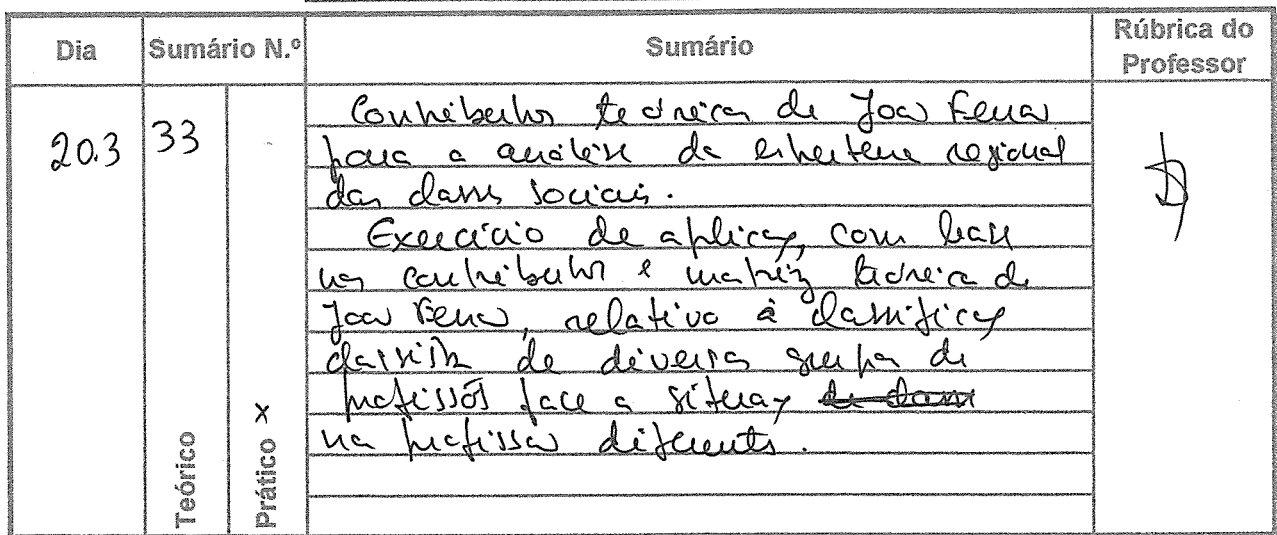 Dia Sumário N.º Sumário Rúbrica do Professor
20.3 33
Contributos teóricos de João Ferrão
para a análise da estrutura regional
das classes sociais.
Exercício de aplicação, com base
nos contributos e matriz teórica de
João Ferrão, relativo à classificação
classista de diversos grupos de
profissões face a situação
na profissão diferentes.
Teórico
Prático x